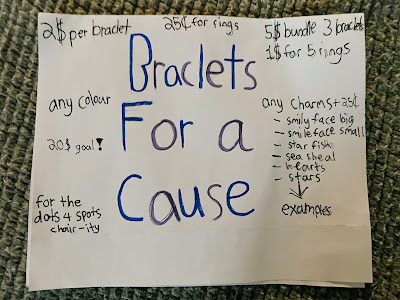 2$ per braclet
25¢ for rings
5$ bundle 3 braclets
1$ for 5 rings
Braclets
For a
Cause
any colour
20$ goal!
for the
dots 4 spots
chair-ity
any charms +25¢
- smily face big
- smile face small
- star fish
- sea sheal
- hearts
- stars
examples